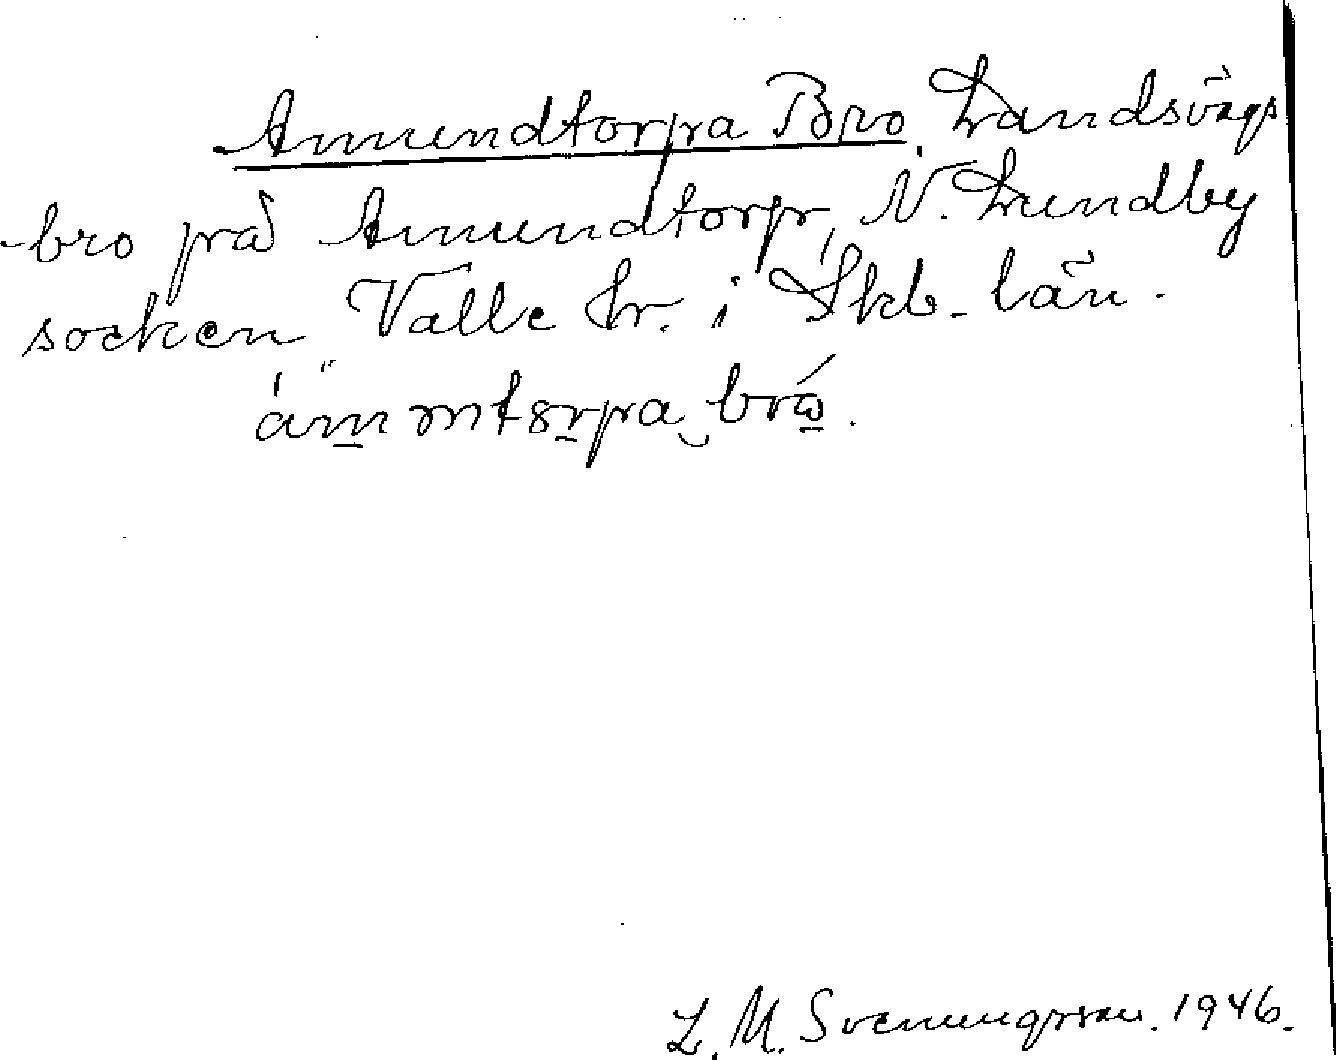 Amundtorpa Bro. Landsvägs
bro på Amundtorp, N. Lundby
socken Valle hr. i Skb. län.
ámmtsrpa brɷ́.
L. M. Svenungsson. 1946.